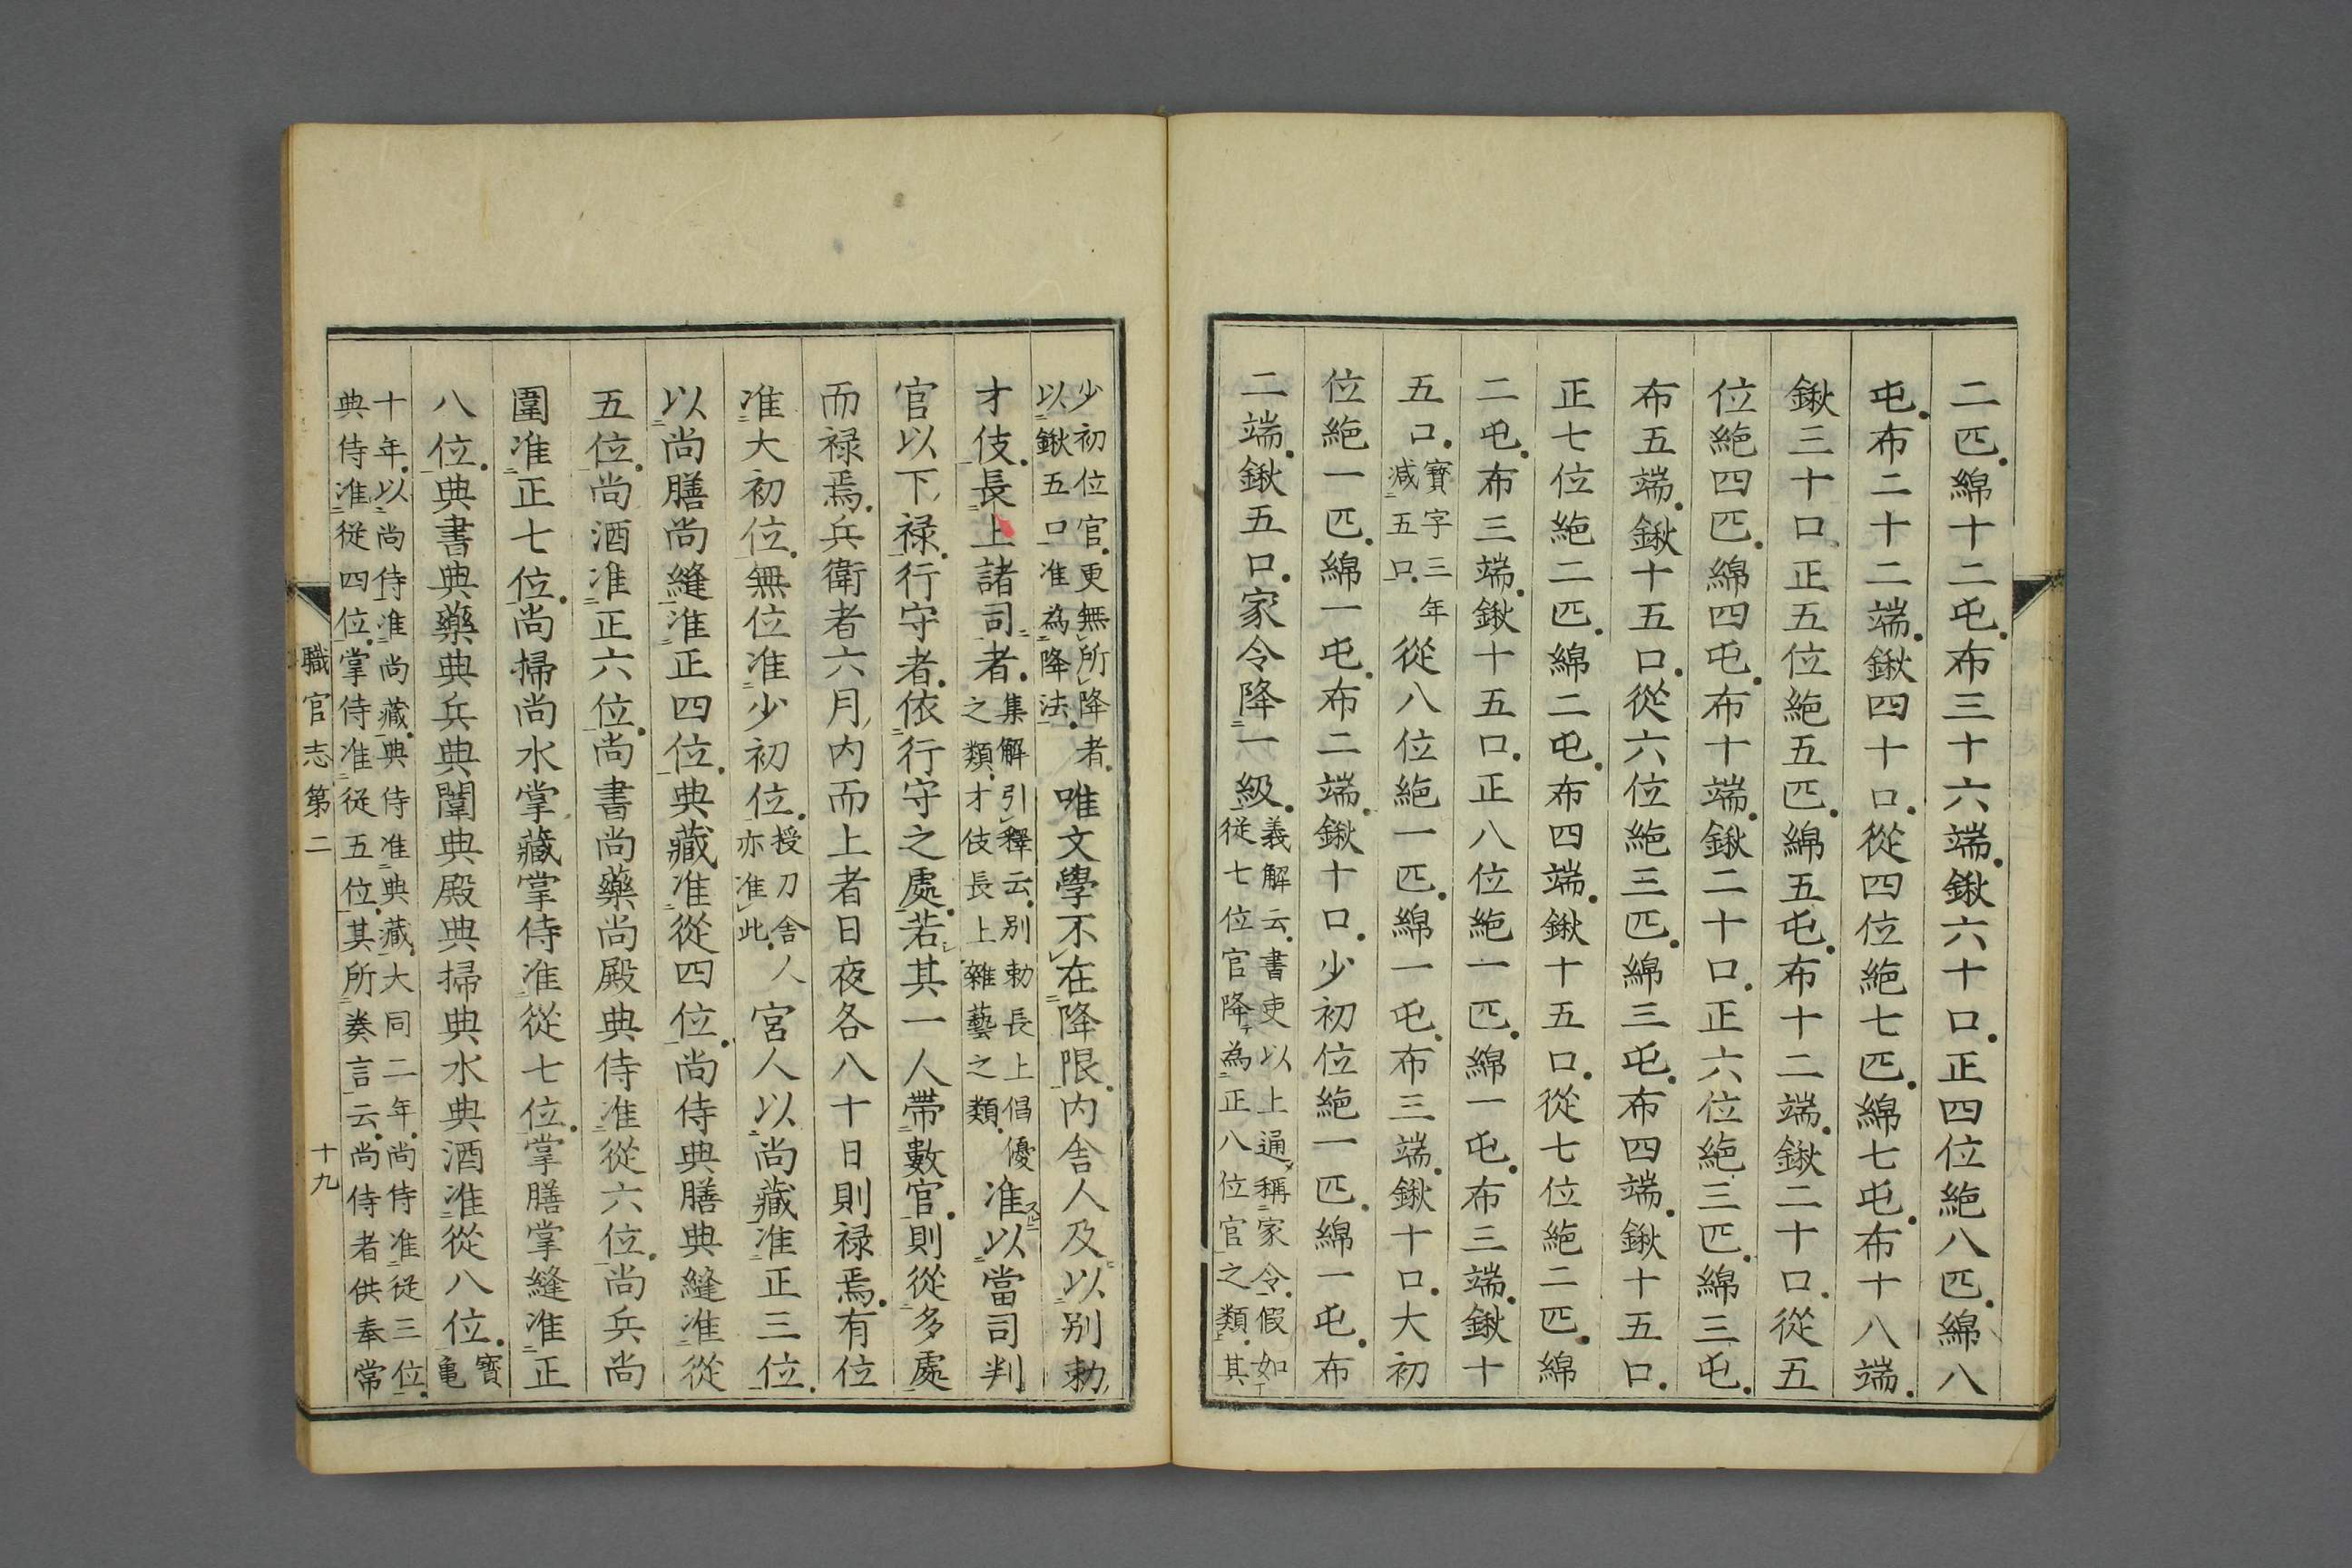 二匹。綿十二屯。布三十六端。鍬六十口。正四位絁八匹。綿八
屯。布二十二端。鍬四十口。從四位絁七匹。綿七屯。布十八端。
鍬三十口。正五位絁五匹。綿五屯。布十二端。鍬二十口。從五
位絁四匹。綿四屯。布十端。鍬二十口。正六位絁三匹。綿三屯。
布五端。鍬十五口。從六位絁三匹。綿三屯。布四端。鍬十五口。
正七位絁二匹。綿二屯。布四端。鍬十五口。從七位絁二匹。綿
二屯。布三端。鍬十五口。正八位絁一匹。綿一屯。布三端。鍬十
五口。寶字三年減五口。從八位絁一匹。綿一屯。布三端。鍬十口。大初
位絁一匹。綿一屯。布二端。鍬十口。少初位絁一匹。綿一屯。布
二端。鍬五口。家令降一級。義解云。書吏以上通稱家令。假如從七位官降為正八位官之類。其
少初位官。更無所降者。以鍬五口准為降法。唯文學不在降限。內舍人及以別勅
才伎長上諸司者。集解引釋云。別勅長上倡優之類。才伎長上雜藝之類。准以當司判
官以下祿。行守者。依行守之處。若其一人帶數官。則從多處
而禄焉。兵衛者六月內而上者日夜各八十日則禄焉。有位
准大初位。無位准少初位。授刀舍人亦准此。宮人以尚藏准正三位。
以尚膳尚縫准正四位。典藏准從四位。尚侍典膳典縫准從
五位。尚酒准正六位。尚書尚藥尚殿典侍准從六位。尚兵尚
圍准正七位。尚掃尚水掌藏掌侍准從七位。掌膳掌縫准正
八位。典書典藥典兵典闈典殿典掃典水典酒准從八位。寶亀
十年。以尚侍准尚藏。典侍准典藏。大同二年。尚侍准從三位。典侍准從四位。掌侍准從五位。其所奏言云。尚侍者供奉常
職官志第二
十九